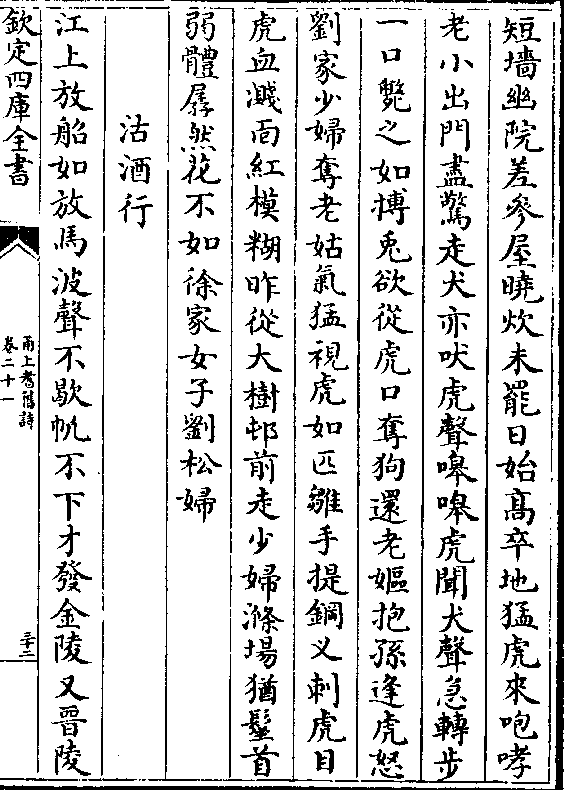 短墻幽院差參屋曉炊未罷日始髙卒地猛虎來咆哮
老小出門盡驚走犬亦吠虎聲嘷嘷虎聞犬聲急轉步
一口斃之如搏兎欲從虎口奪狗還老嫗抱孫逢虎怒
劉家少婦奪老姑氣猛視虎如匹雛手提鋼义刺虎目
虎血濺面紅模糊昨從大樹邨前走少婦滌場猶髽首
弱體孱然花不如徐家女子劉松婦
沽酒行
江上放船如放馬波聲不歇帆不下才發金陵又晉陵
欽定四庫全書
甬上耆舊詩
卷二十一
三十二